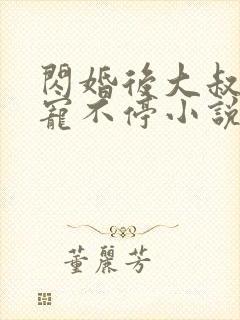 閃婚後大叔
寵不停小說
董麗芳